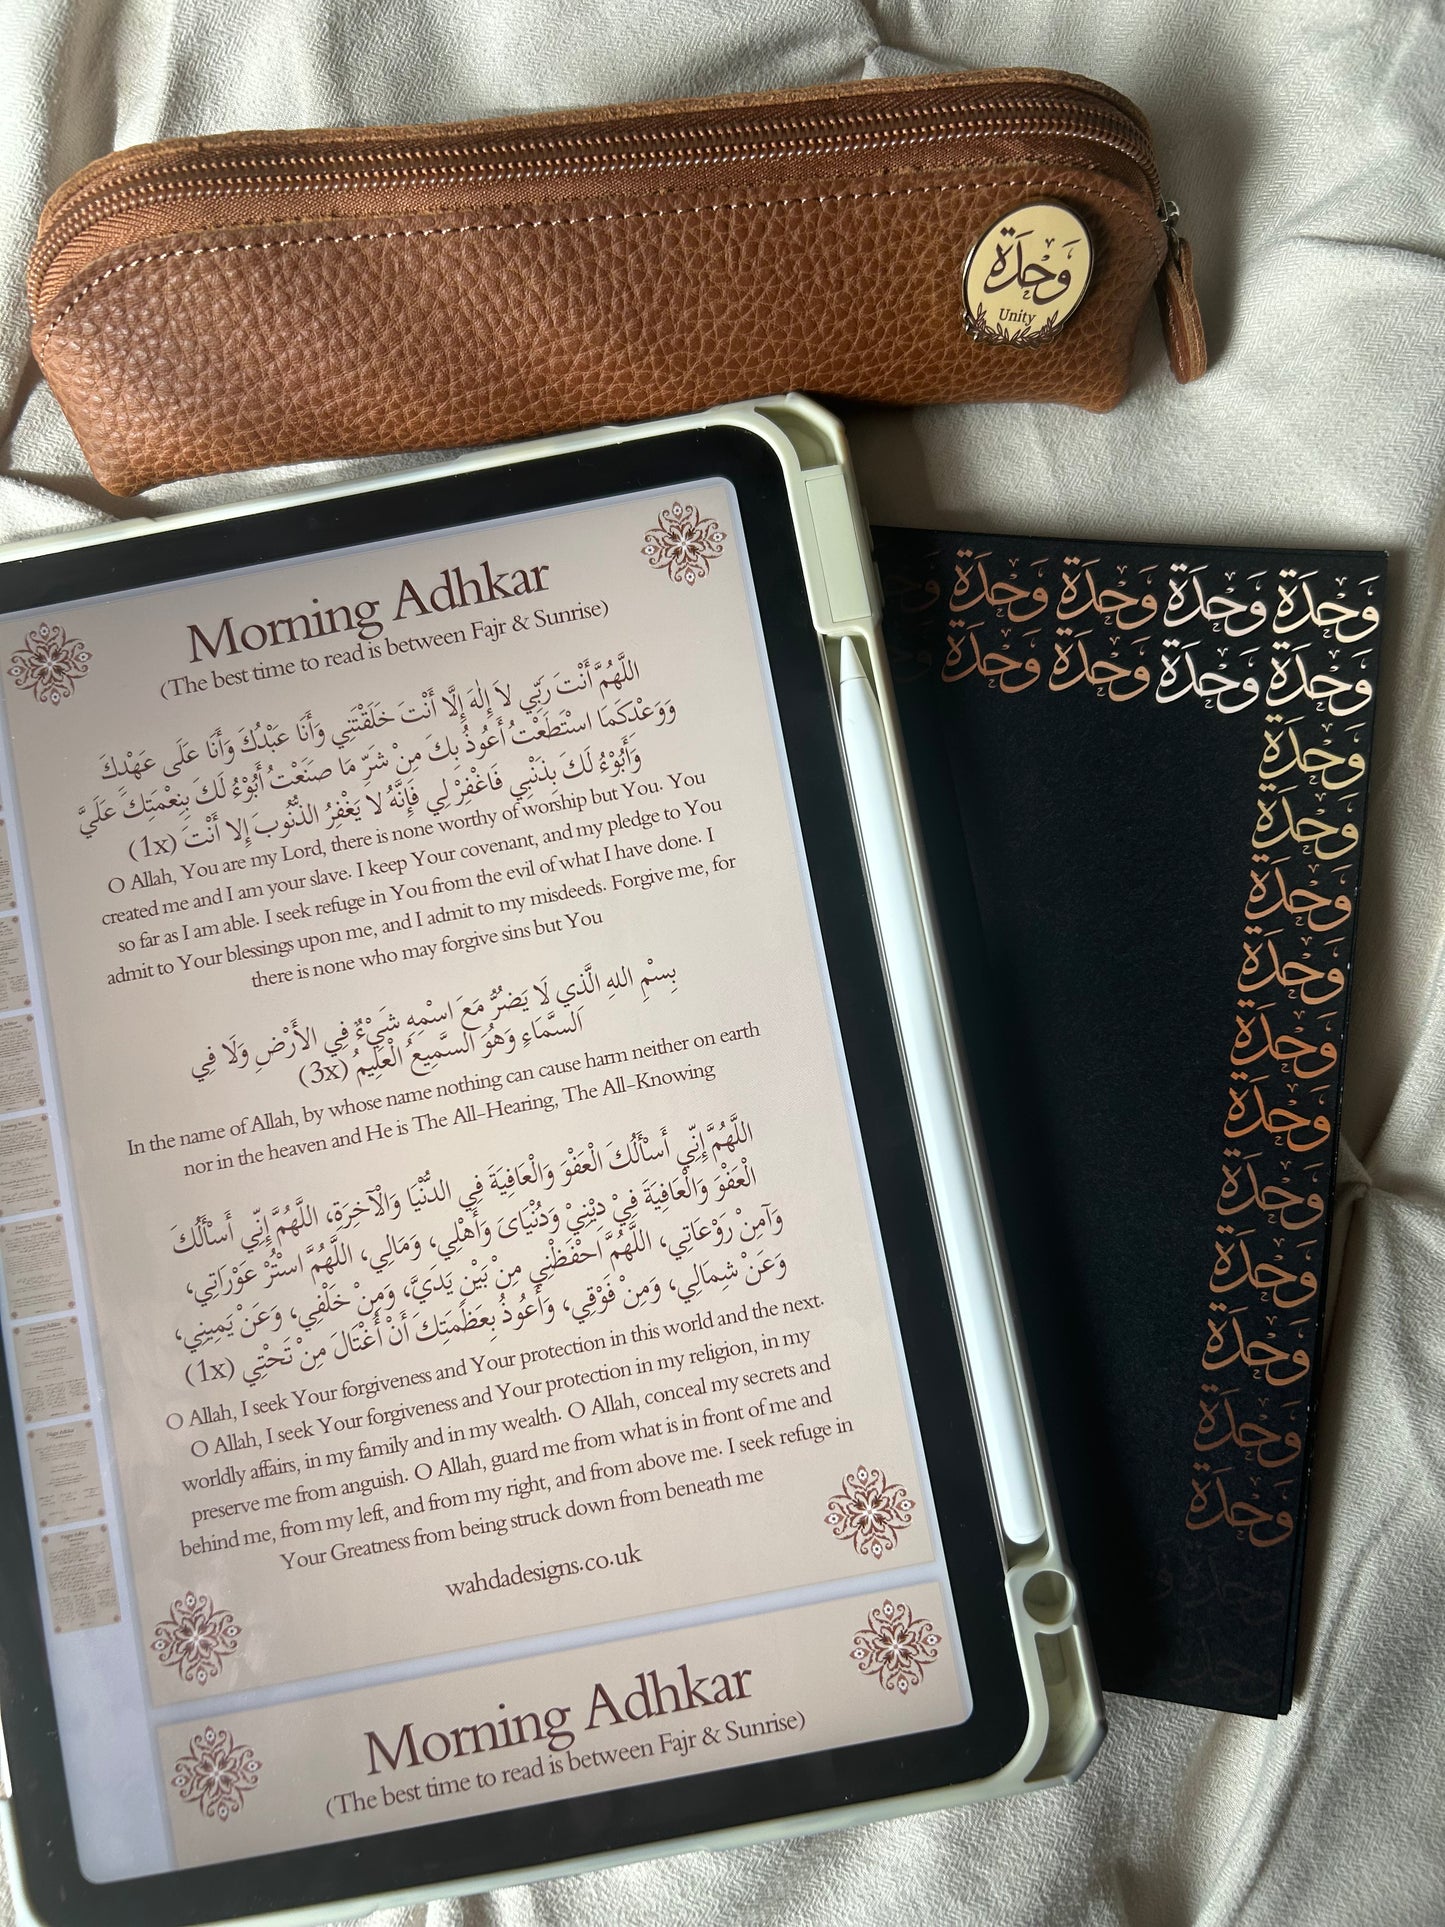 وَحْدَة
Unity
Morning Adhkar
(The best time to read is between Fajr & Sunrise)
اللَّهُمَّ أَنْتَ رَبِّي لاَ إِلٰهَ إِلَّا أَنْتَ خَلَقْتَنِي وَأَنَا عَبْدُكَ وَأَنَا عَلَى عَهْدِكَ
وَوَعْدِكَمَا اسْتَطَعْتُ أَعُوذُ بِكَ مِنْ شَرِّ مَا صَنَعْتُ أَبُوْءُ لَكَ بِنِعْمَتِكَ عَلَيَّ
وَأَبُوْءُ لَكَ بِذَنْبِي فَاغْفِرْ لِي فَإِنَّهُ لا يَغْفِرُ الذُّنُوبَ إِلا أَنْتَ (1x)
O Allah, You are my Lord, there is none worthy of worship but You. You
created me and I am your slave. I keep Your covenant, and my pledge to You
so far as I am able. I seek refuge in You from the evil of what I have done. I
admit to Your blessings upon me, and I admit to my misdeeds. Forgive me, for
there is none who may forgive sins but You
بِسْمِ اللهِ الَّذِي لَا يَضُرُّ مَعَ اسْمِهِ شَيْءٌ فِي الأَرْضِ وَلَا فِي
اَلسَّمَاءِ وَهُوَ السَّمِيعُ الْعَلِيمُ (3x)
In the name of Allah, by whose name nothing can cause harm neither on earth
nor in the heaven and He is The All-Hearing, The All-Knowing
اللَّهُمَّ إِنِّي أَسْأَلُكَ الْعَفْوَ وَالْعَافِيَةَ فِي الدُّنْيَا وَالْآخِرَةِ، اللَّهُمَّ إِنِّي أَسْأَلُكَ
الْعَفْوَ وَالْعَافِيَةَ فِيْ دِيْنِيْ وَدُنْيَاىَ وَأَهْلِي، وَمَالِي، اللَّهُمَّ اسْتُرْ عَوْرَاتِي،
وَآمِنْ رَوْعَاتِي، اللَّهُمَّ احْفَظْنِي مِنْ بَيْنِ يَدَيَّ، وَمِنْ خَلْفِي، وَعَنْ يَمِينِي،
وَعَنْ شِمَالِي، وَمِنْ فَوْقِي، وَأَعُوذُ بِعَظَمَتِكَ أَنْ أُغْتَالَ مِنْ تَحْتِي (1x)
O Allah, I seek Your forgiveness and Your protection in this world and the next.
O Allah, I seek Your forgiveness and Your protection in my religion, in my
worldly affairs, in my family and in my wealth. O Allah, conceal my secrets and
preserve me from anguish. O Allah, guard me from what is in front of me and
behind me, from my left, and from my right, and from above me. I seek refuge in
Your Greatness from being struck down from beneath me
wahdadesigns.co.uk
Morning Adhkar
(The best time to read is between Fajr & Sunrise)
وَحْدَة وَحْدَة وَحْدَة وَحْدَة وَحْدَة
وَحْدَة وَحْدَة وَحْدَة وَحْدَة
وَحْدَة
وَحْدَة
وَحْدَة
وَحْدَة
وَحْدَة
وَحْدَة
وَحْدَة
وَحْدَة
وَحْدَة
وَحْدَة
وَحْدَة
وَحْدَة